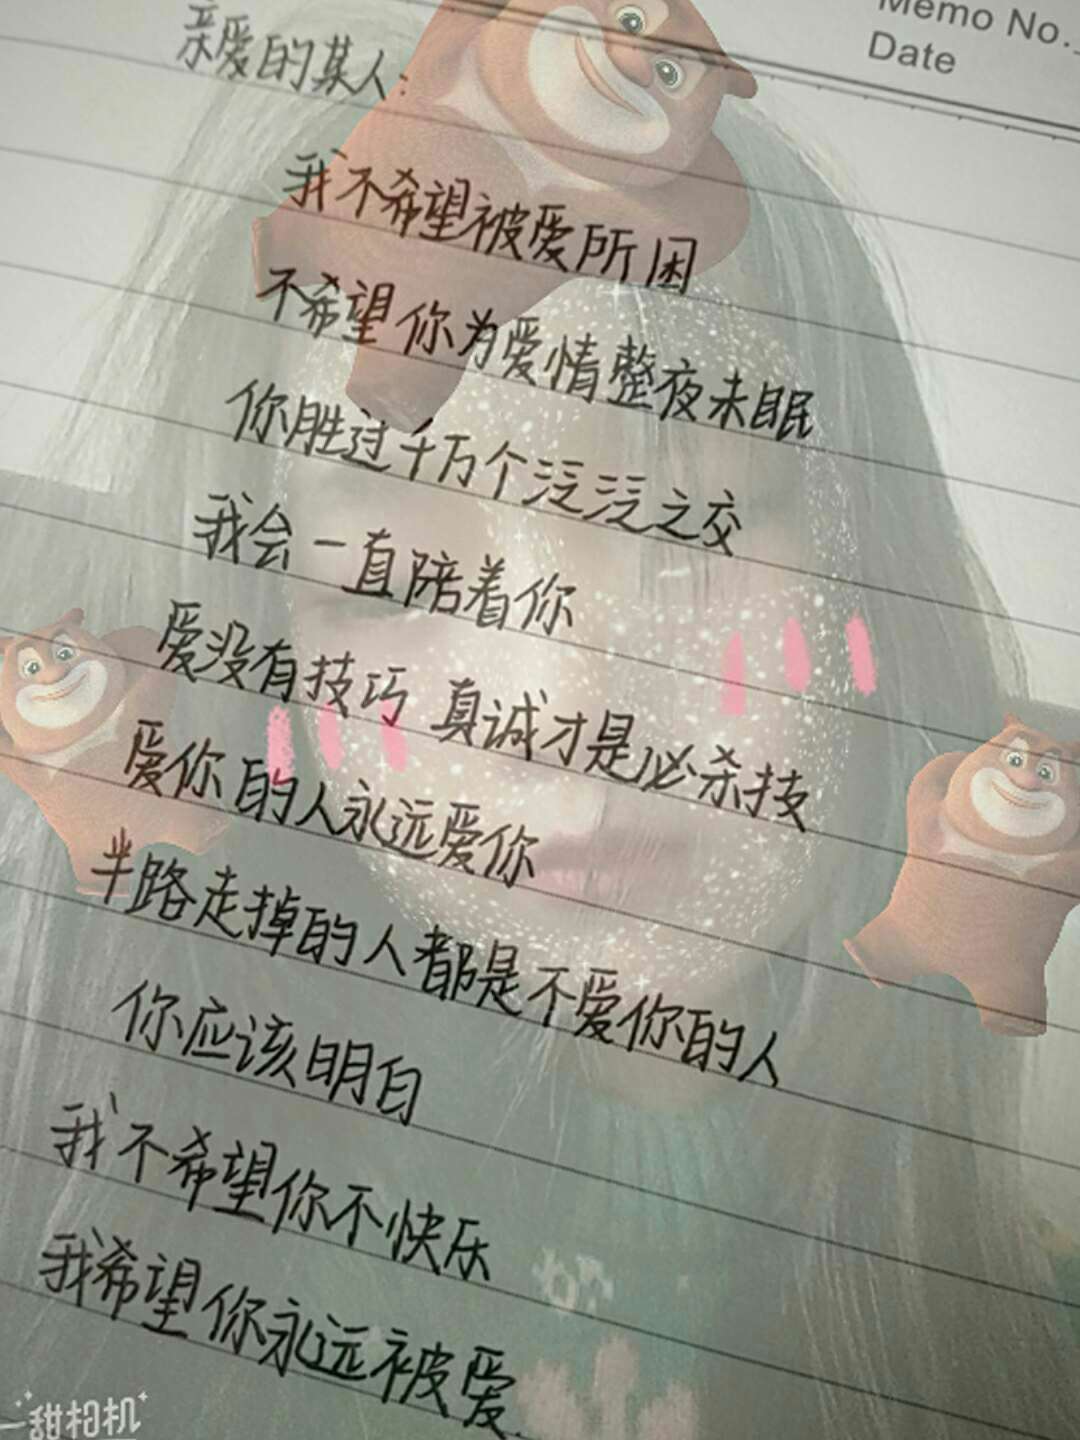 Memo No.
Date
亲爱的某人：
我不希望被爱所困
不希望你为爱情整夜未眠
你胜过千万个泛泛之交
我会一直陪着你
爱没有技巧 真诚才是必杀技
爱你的人永远爱你
半路走掉的人都是不爱你的人
你应该明白
我不希望你不快乐
我希望你永远被爱.
一甜相机